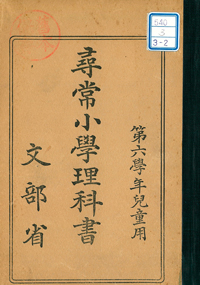 第六學年兒童用
尋常小學理科書
文部省
3-2